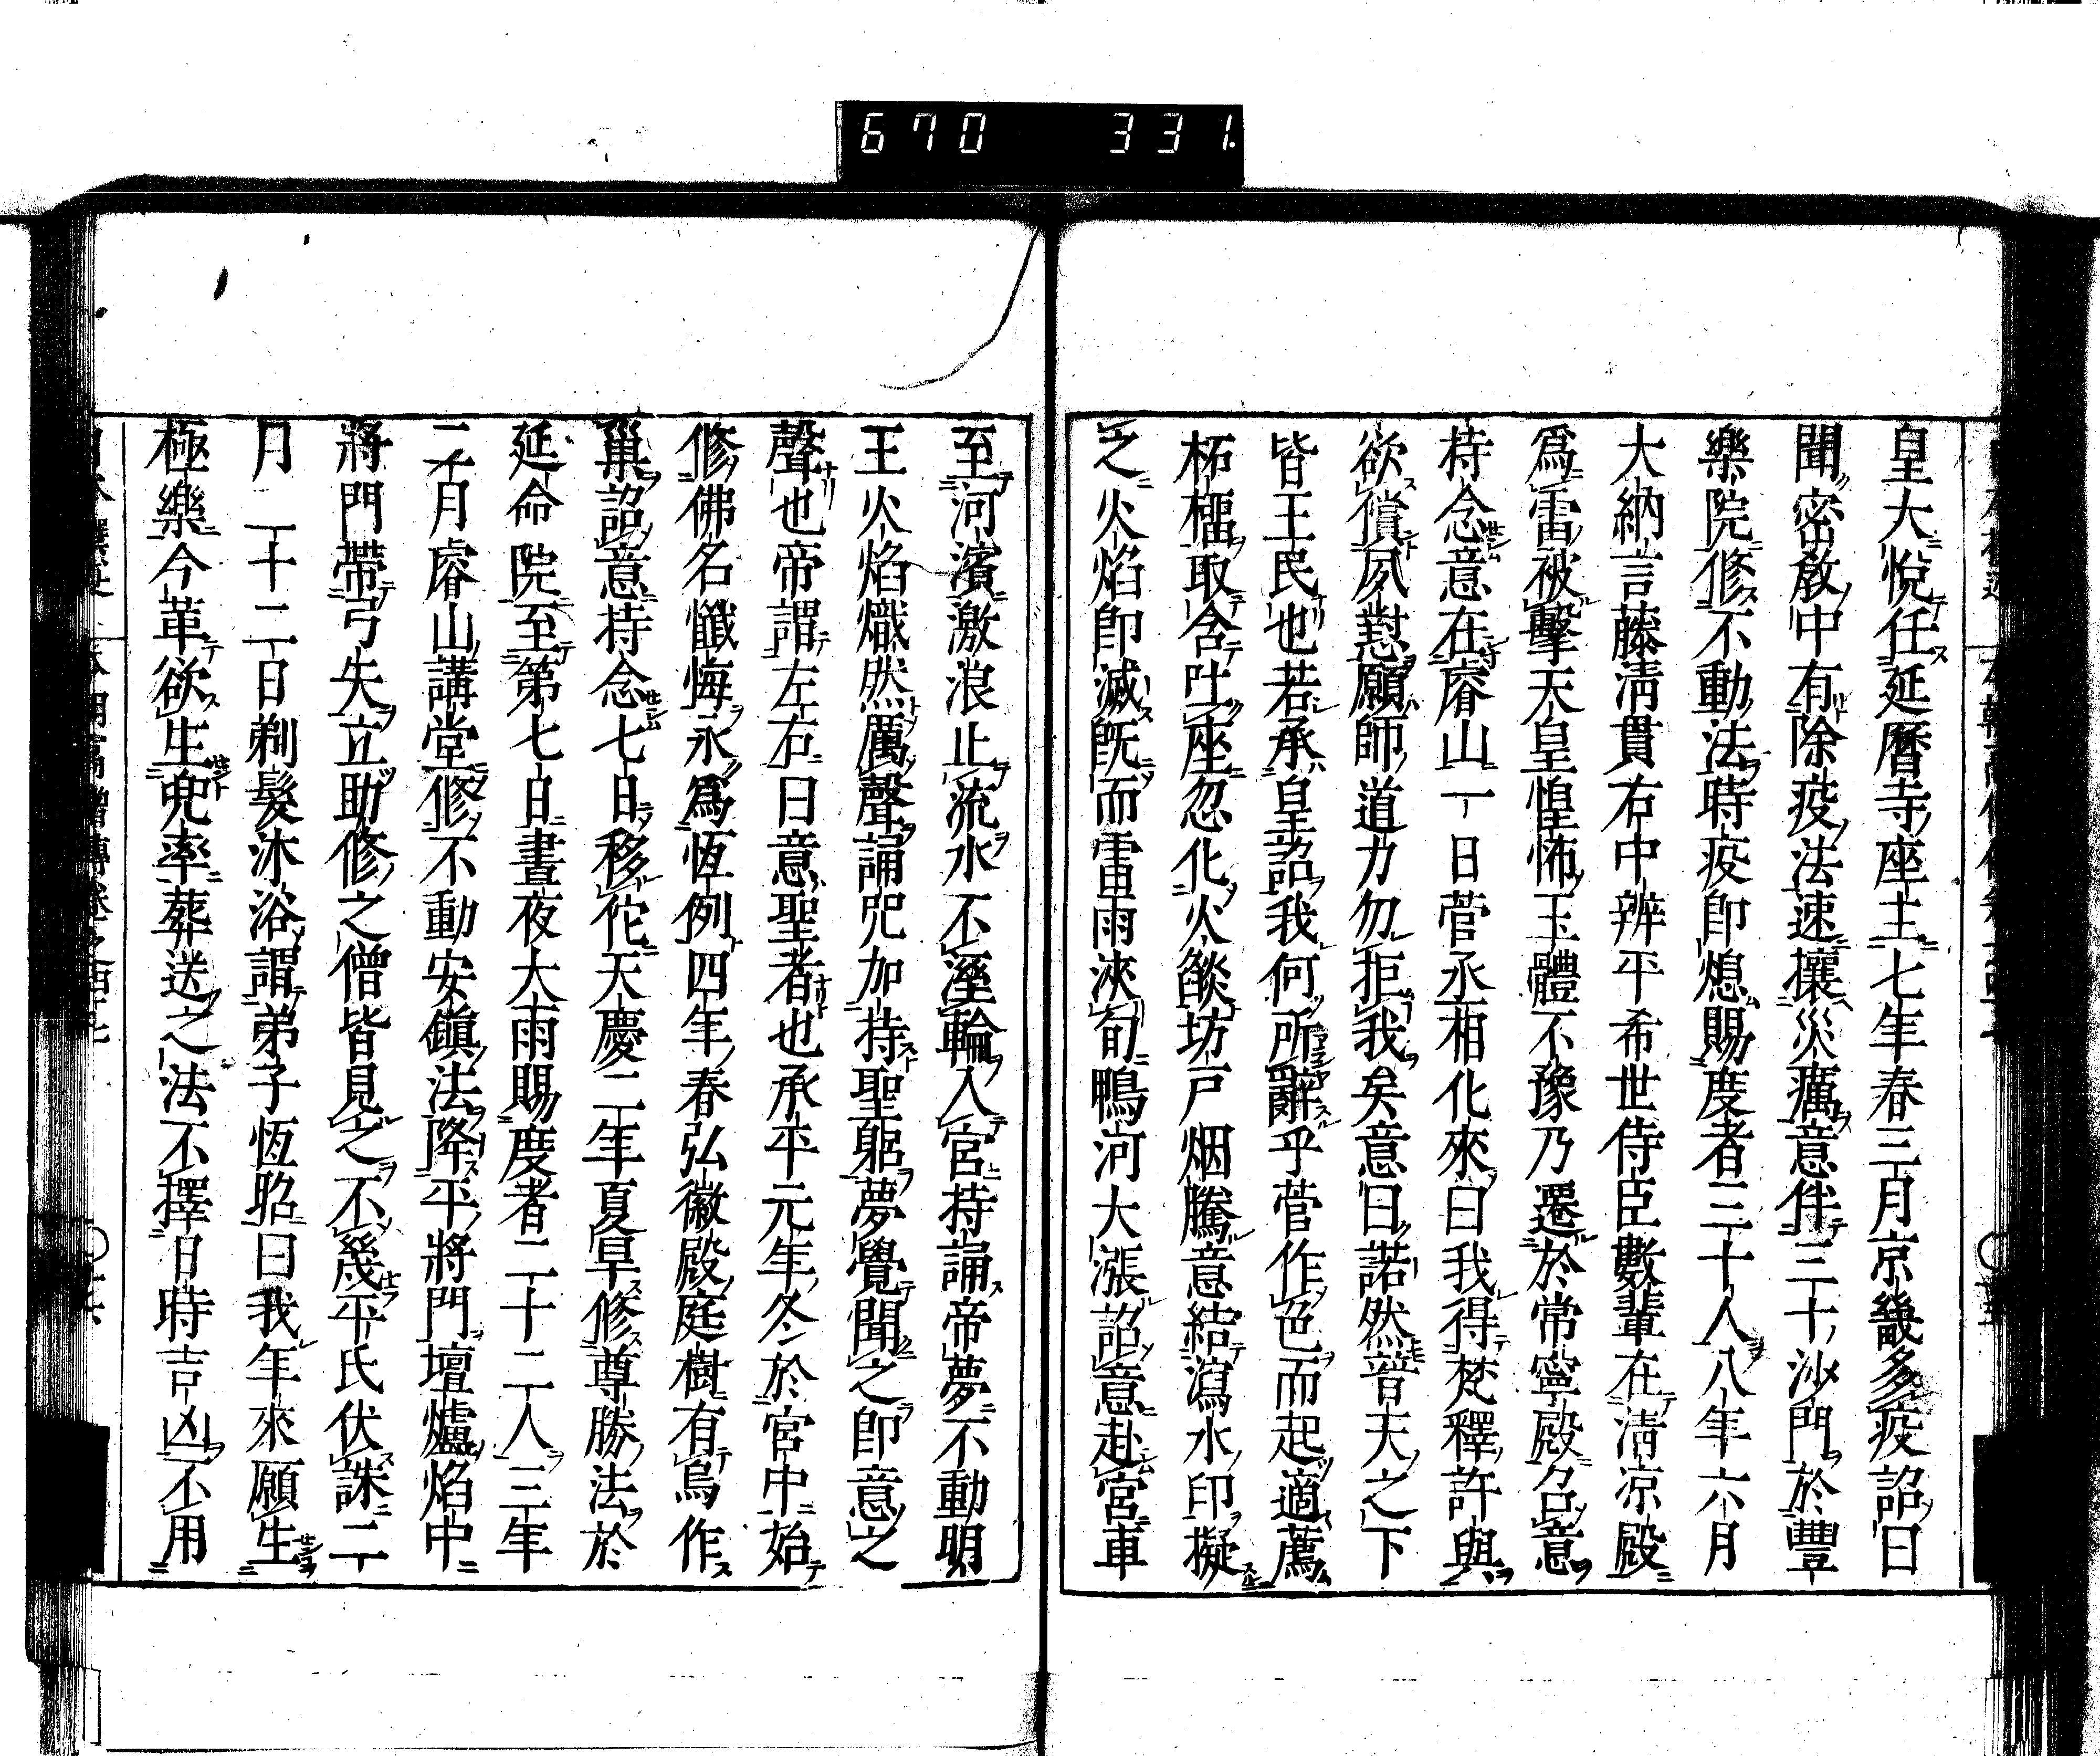 670 331.
皇大悅任延曆寺座主七年春三月京畿多疫詔曰
聞密敎中有除疫法速攘災癘意伴三十沙門於豐
樂院修不動法時疫卽熄賜度者三十人八年六月
大納言藤淸貫右中辨平希世侍臣數輩在淸凉殿
爲雷被擊天皇惶怖玉體不豫乃遷於常寧殿召意
持念意在睿山一日菅丞相化來曰我得梵釋許與
欲償夙懟願師道力勿拒我矣意曰諾然普天之下
皆王民也若承皇詔我何所辭乎菅作色而起適薦
柘榴取含吐座忽化火燄坊戸烟騰意結瀉水印擬
之火焰卽滅旣而雷雨浹旬鴨河大漲詔意赴宮車
至河濱激浪止流水不溼輪入宮持誦帝夢不動明
王火焰熾然厲聲誦咒加持聖躬夢覺聞之卽意之
聲也帝謂左右曰意聖者也承平元年冬於宮中始
修佛名懺悔永爲恆例四年春弘徽殿庭樹有烏作
巢詔意持念七日移佗天慶二年夏旱修尊勝法於
延命院至第七日晝夜大雨賜度者二十二人三年
二月睿山講堂修不動安鎭法降平將門壇爐焰中
將門帶弓矢立助修之僧皆見之不幾平氏伏誅二
月二十二日剃髮沐浴謂弟子恆昭曰我年來願生
極樂今革欲生兜率葬送之法不擇日時吉凶不用